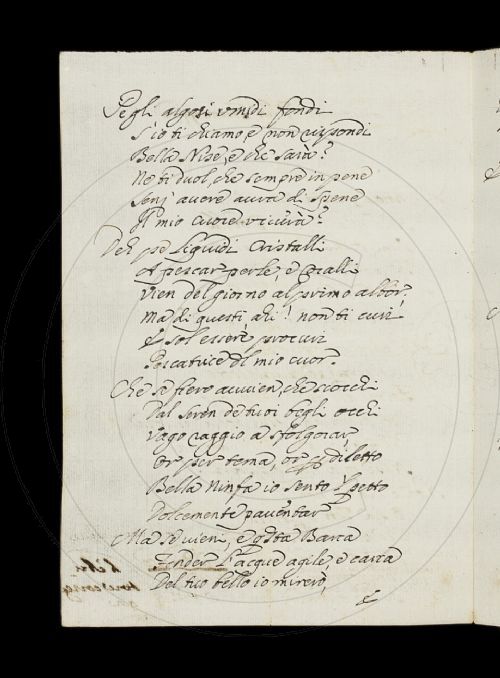 Pe gli algosi umidi fondi
S'io ti chiamo, e non rispondi
Bella Nise, e che sarà?
Ne ti duol, che sempre in pene
Senz' avere aura di spene
Il mio cuore viverà?
Deh pe liquidi Cristalli
A pescar perle, e coralli
Vien del giorno al primo albor,
Ma di questi ahi! non ti curi
E sol essere procuri
Pescatrice del mio cuor.
Che se fiero avvien, che scocchi
Dal seren de tuoi begli occhi
Vago raggio a sfolgorar
Or per tema, or diletto
Bella Ninfa io sento petto
Dolcemente paventar
Ma se vieni, e Barca
Fender l'acque agile, e carca
Del tuo bello io mirerò,